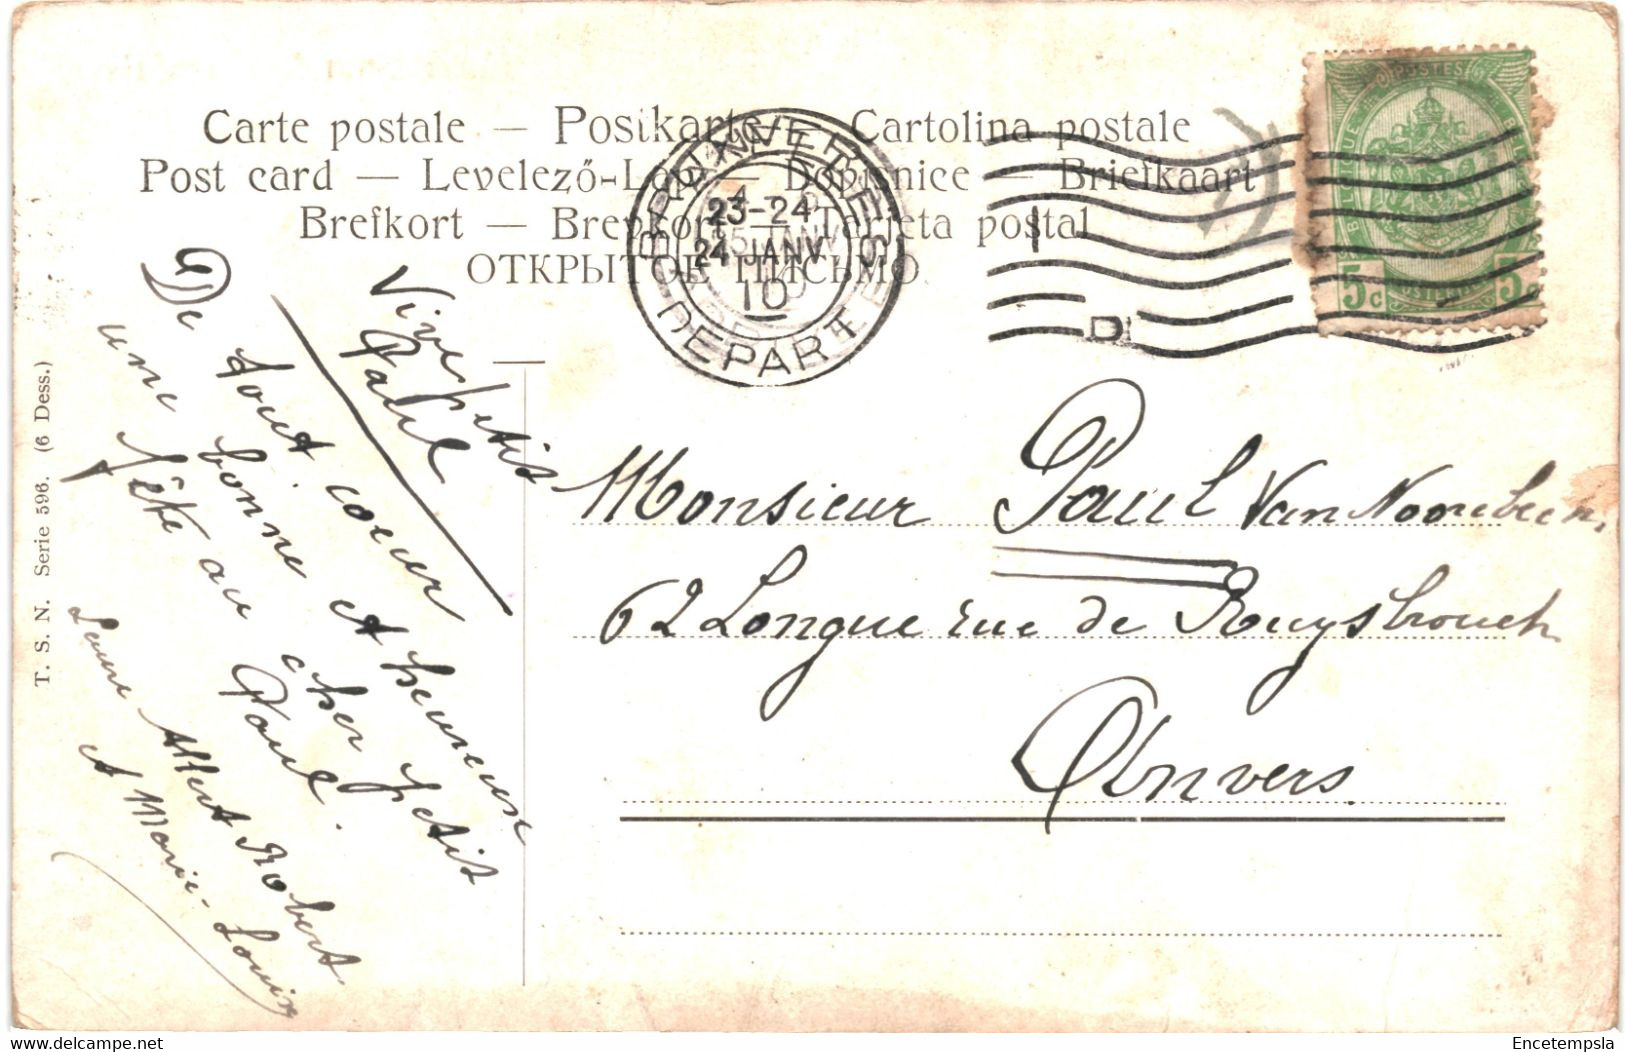 Carte postale — Postkarte — Cartolina postale
Post card — Levelező-Lap — Dopisnice — Briefkaart
Brefkort — Brevkort — Tarjeta postal
ОТКРЫТОЕ ПИСЬМО
ANVERS
DEPART
23-24
24 JANV
10
POSTES
BELGIQUE
5 c 5 c
D
Vive petit
Paul
De tout coeur
une bonne et heureuse
fête au cher petit
Paul.
Albert Robert
et Marie-Louise
Monsieur Paul Van
62 Longue rue de Ruysbroeck
Anvers
T. S. N. Serie 596. (6 Dess.)
delcampe.net
Encetempsla